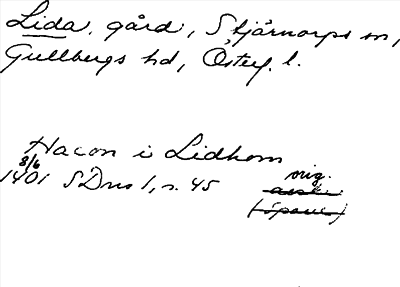 Lida, gård, Stjärnorps sn,
Gullbergs hd, Österg. l.
Hacon i Lidhom
8/6
1401 SDns 1, s. 45 orig.